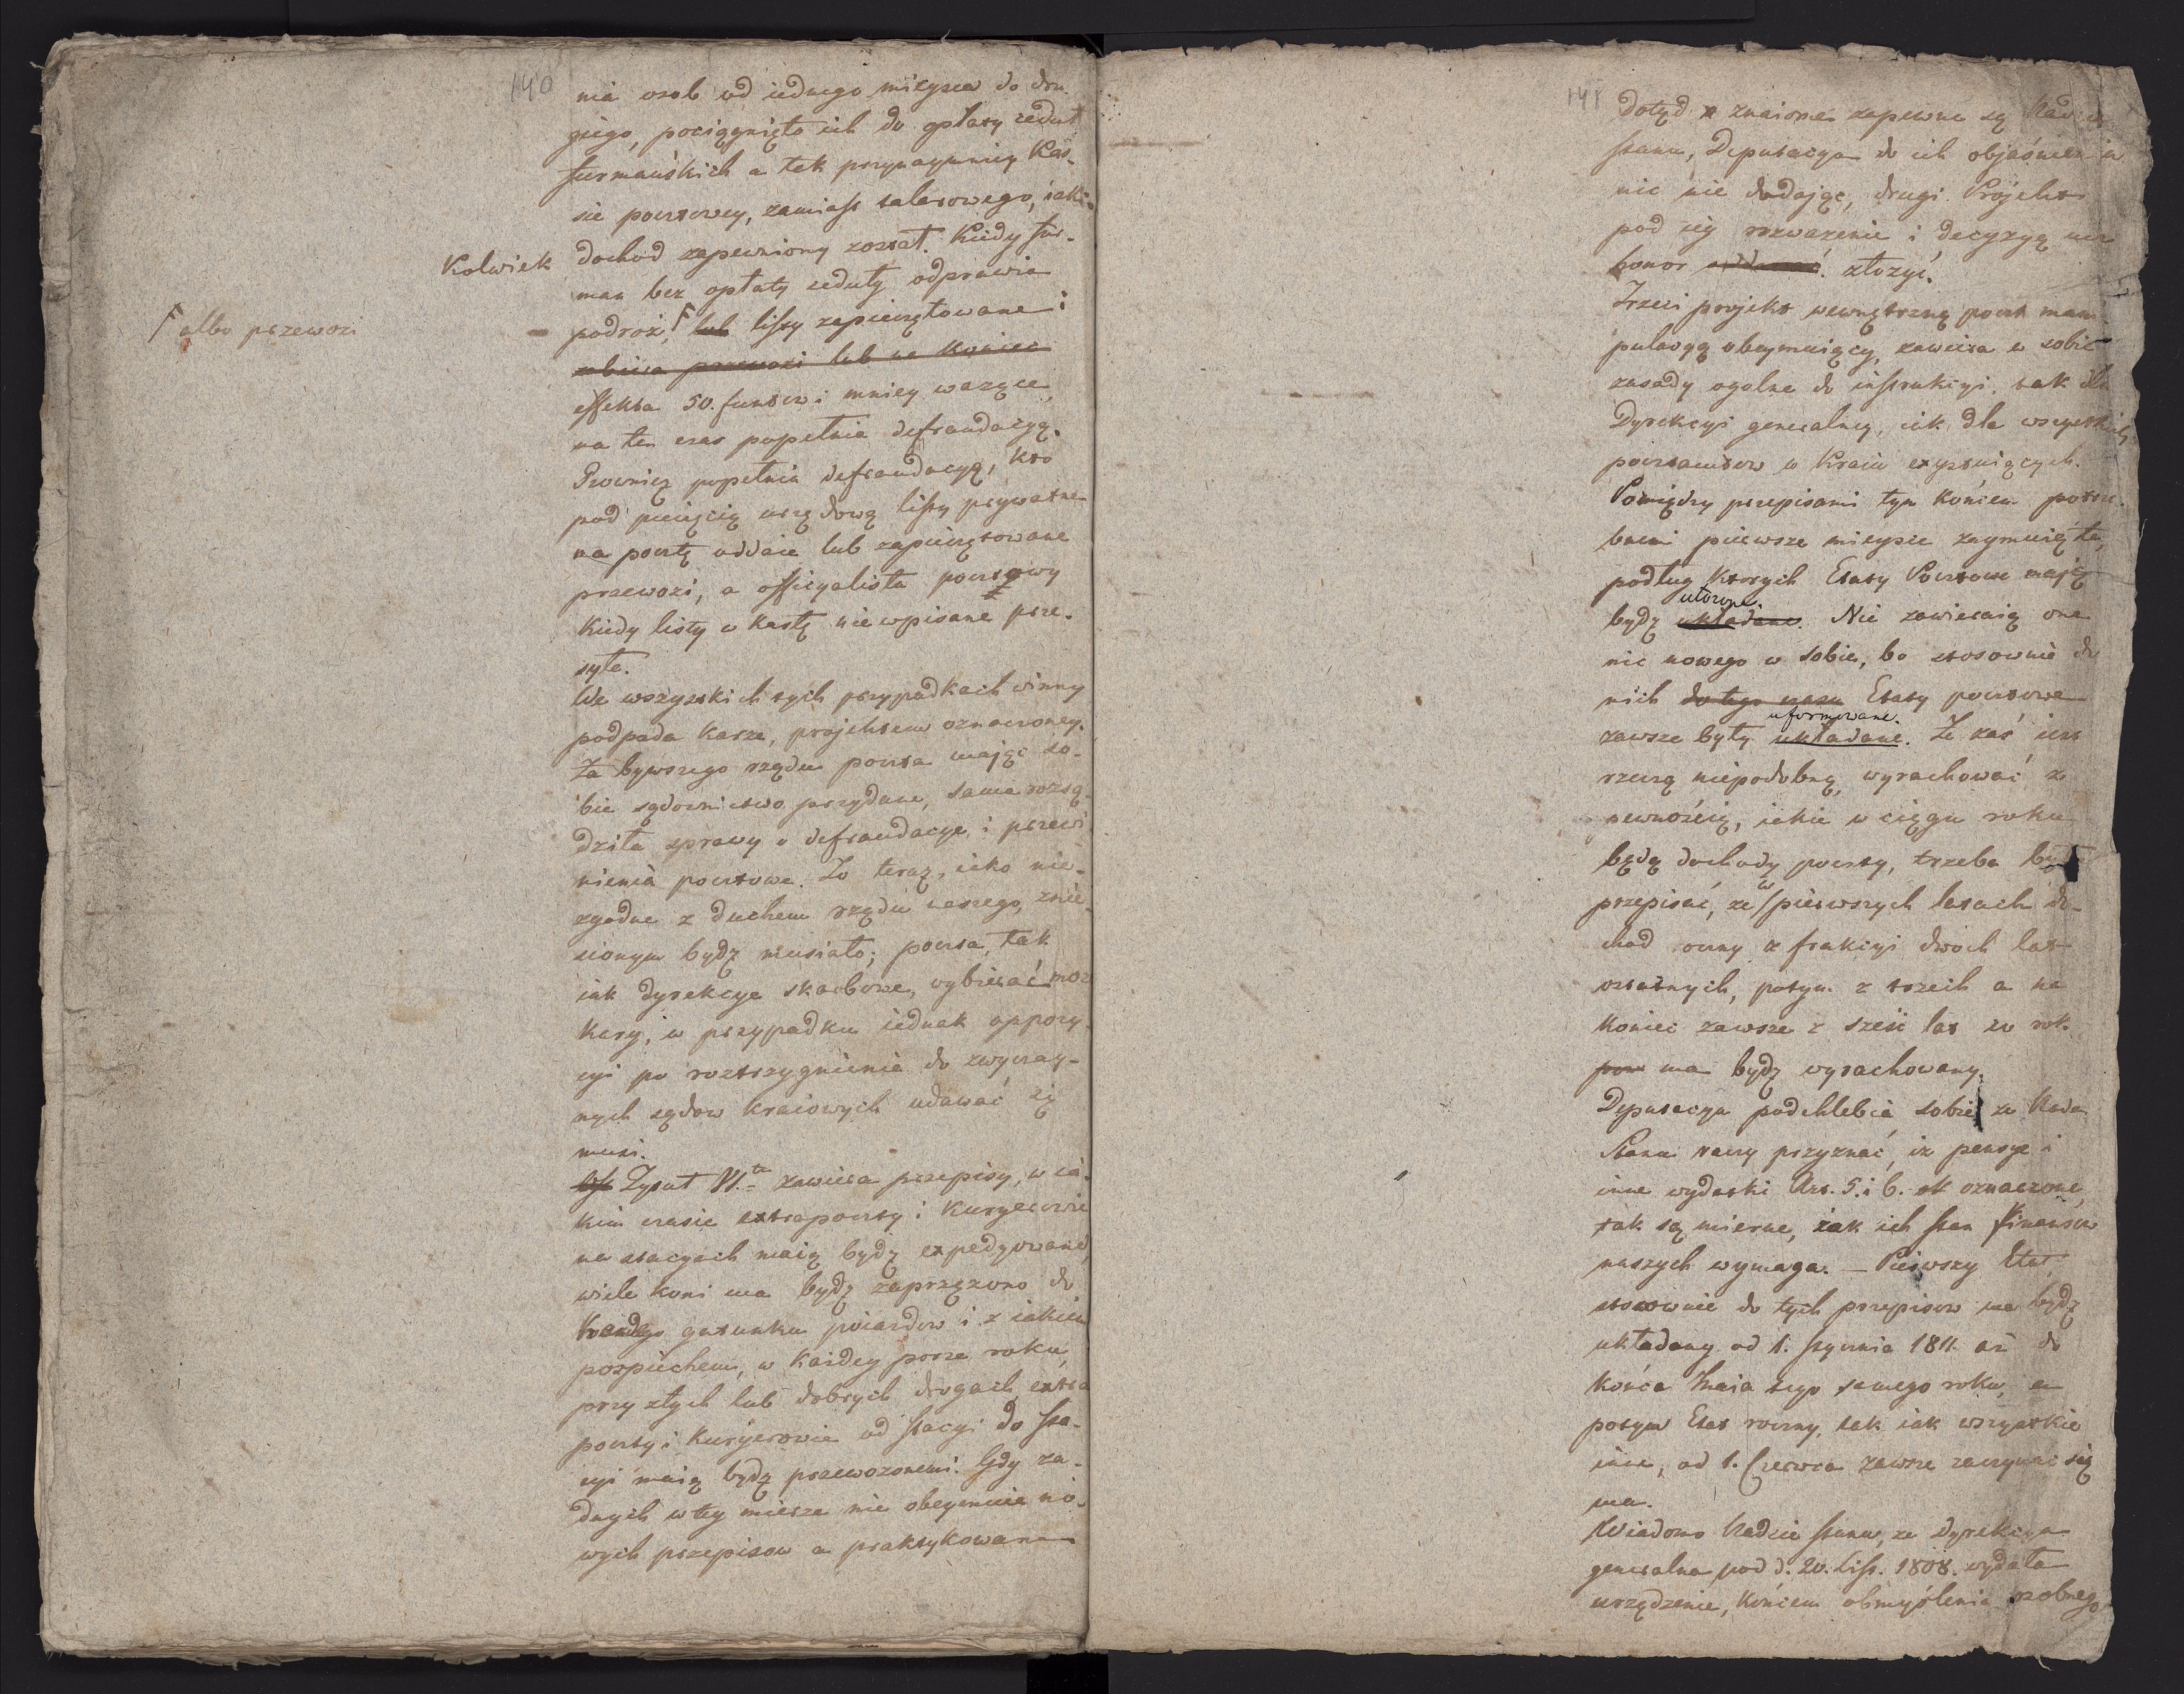 140
nia osob od iednego mieysca do dru
giego, pociągnięto ich do opłaty cedut
furmańskich a tak przynaymniey Kas-
sie pocztowey, zamiast talarowego, iaki-
Kolwiek dochod zapewniony został. Kiedy fur-
man bez opłaty ceduły odprawia
podroż, lub listy zapieczętowane i
albo przewozi
zabiera przewozi lub na koniec
effekta 50. funtow i mniey ważące,
na ten czas popełnia defraudacyą.
Rownież popełnia defraudacyą, kto
pod pieczęcią urzędową listy prywatne
na pocztę oddaie lub zapieczętowane
przewozi, a officyalista pocztowy
Kiedy listy w kartę nie wpisane prze-
syła.
We wszystkich tych przypadkach winny
podpada karze, projektem oznaczoney.
Za bywszego rządu poczta mając so-
bie sądownictwo przydane, sama rozsą-
dziła sprawy o defraudacye i przewi
nienia pocztowe. To teraz, iako nie-
zgodne z duchem rządu naszego, znie-
sionym bydź musiało; poczta, tak
iak dyrekcye skarbowe, wybierać moż
kary, w przypadku iednak oppozy-
cyi po roztrzygnienie do zwyczay-
nych sądow kraiowych udawać się
musi.
Tytuł VI.ty zawiera przepisy, w ia-
kim czasie extrapoczty i Kuryerowie
na stacyach maią bydź expedyowane,
wiele koni ma bydź zaprzężono do
każdego gatunku poiazdow i z iakim
pospiechem, w każdey porze roku,
przy złych lub dobrych drogach extra
poczty i kuryerowie od stacyi do sta-
cyi maią bydź przewożonemi. Gdy ża-
dnych w tey mierze nie obeymuie no-
wych przepisow a praktykowane
141
dotąd znaiome zapewne są Radzie
stanu, Deputacya do ich objaśnienia
nic nie dodając, drugi Projekt
pod iey rozważenie i decyzyą ma
honor oddawać. złożyć.
Trzeci projekt wewnętrzną poczt mani
pulacyą obeymuiący, zawiera w sobie
zasady ogolne do instrukcyi, tak dla
Dyrekcyi generalney, iak dla wszystkich
pocztamtow w Kraiu exystuiących.
Pomiędzy przepisami tym końcem potrze-
bnemi pierwsze mieysce zaymuią te,
podług ktorych Etaty Pocztowe mają
bydź układane. utworzone. Nie zawieraią one
nic nowego w sobie, bo stosownie do
nich do tego czasu Etaty pocztowe
zawsze były układane. uformowane. Że zaś iest
rzeczą niepodobną, wyrachować z
pewnością, iakie w ciągu roku
będą dochody poczty, trzeba było
przepisać, że w pierwszych latach do-
chod roczny z frakcyi dwoch lat
ostatnych, potym z trzech a na
koniec zawsze z sześć lat
ma bydź wyrachowany.
Deputacya podchlebia sobie, że Rada
Stanu raczy przyznać, iż pensye i
inne wydatki Art. 5. i 6. oznaczone,
tak są mierne, iak ich stan finansow
naszych wymaga. — Pierwszy Etat
stosownie do tych przepisow ma bydź
układany od 1. stycznia 1811. aż do
końca Maia tego samego roku, a
potym Etat roczny, tak iak wszystkie
inne, od 1. Czerwca zawsze zaczynać się
ma.
Wiadomo Radzie stanu, że Dyrekcya
generalna pod d. 20. List. 1808. wydała
urządzenie, końcem obmyślenia osobnego